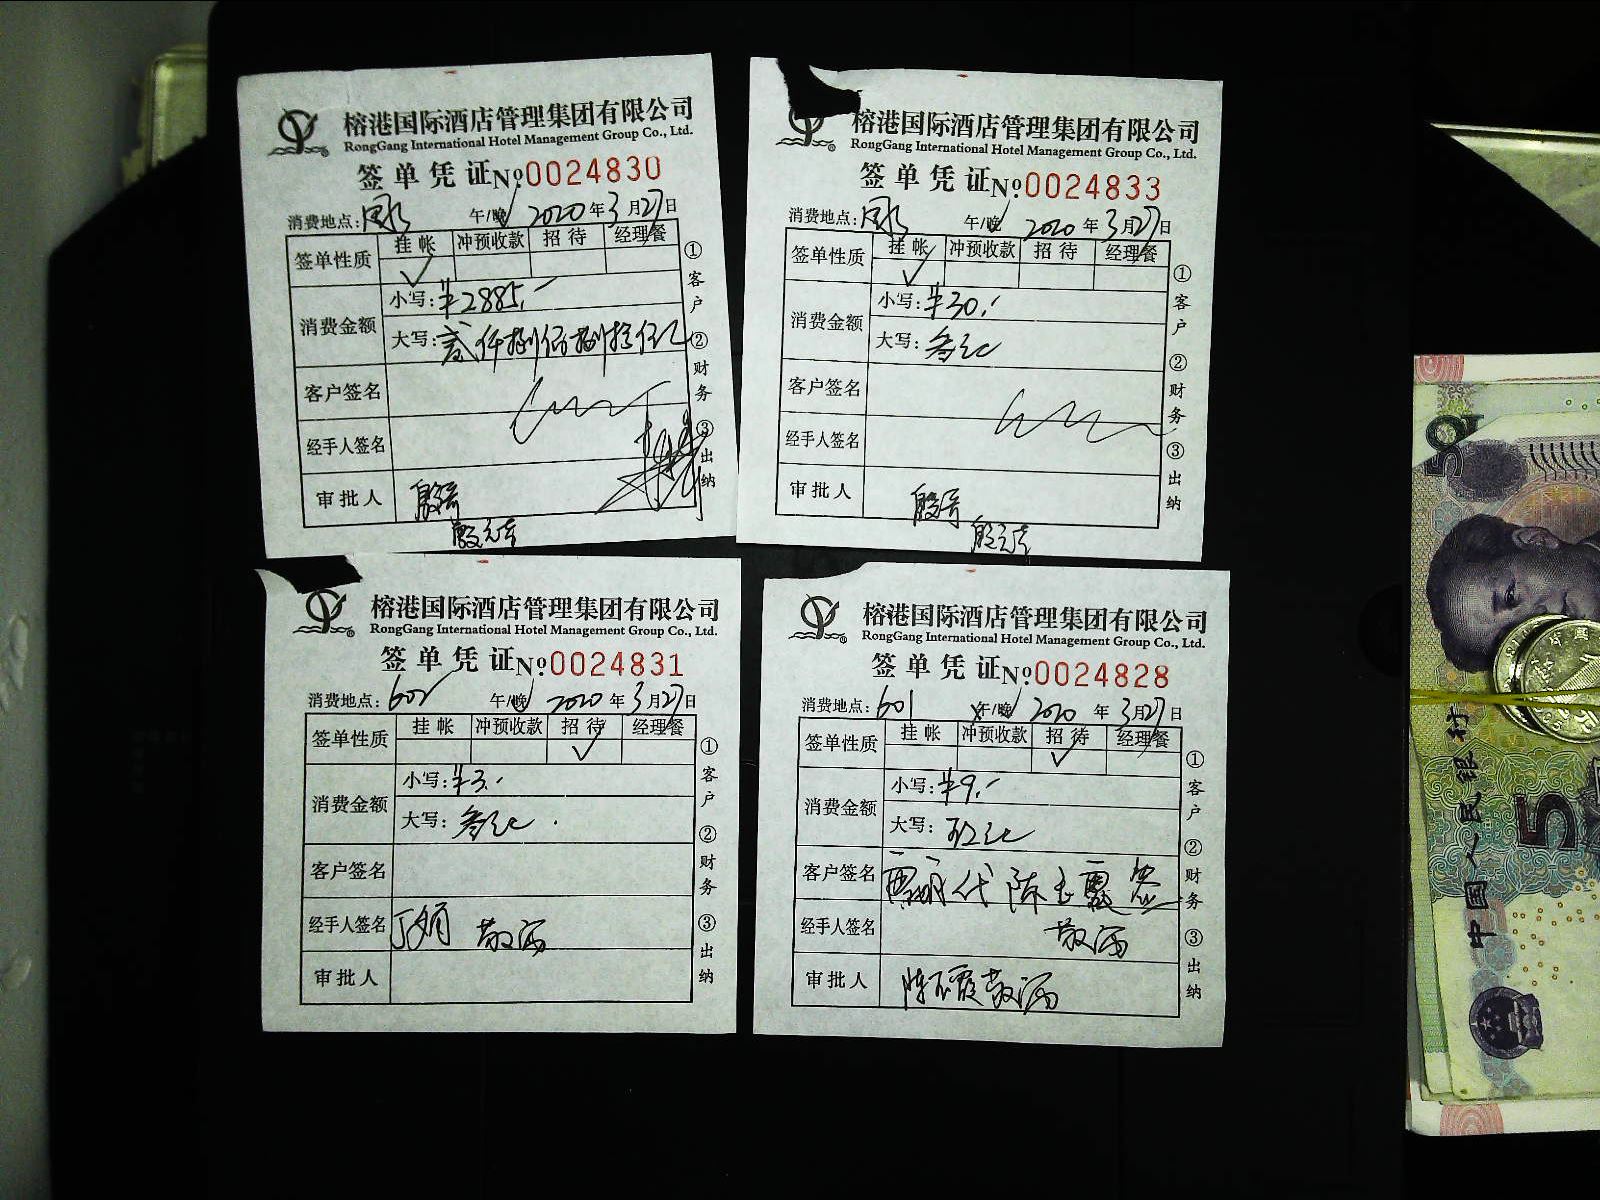 榕港国际酒店管理集团有限公司
RongGang International Hotel Management Group Co., Ltd.
签单凭证 №0024830
消费地点: 午/晚 2020年3月27日
签单性质 挂帐 冲预收款 招待 经理餐
✓
消费金额 小写:¥2885.-
大写:贰仟捌佰捌拾伍元
客户签名
经手人签名
审批人
①客户 ②财务 ③出纳
榕港国际酒店管理集团有限公司
RongGang International Hotel Management Group Co., Ltd.
签单凭证 №0024833
消费地点: 午/晚 2020年3月27日
签单性质 挂帐 冲预收款 招待 经理餐
✓
消费金额 小写:¥30.-
大写:
客户签名
经手人签名
审批人
①客户 ②财务 ③出纳
榕港国际酒店管理集团有限公司
RongGang International Hotel Management Group Co., Ltd.
签单凭证 №0024831
消费地点: 午/晚 2020年3月27日
签单性质 挂帐 冲预收款 招待 经理餐
✓
消费金额 小写:¥3.-
大写:叁元
客户签名
经手人签名
审批人
①客户 ②财务 ③出纳
榕港国际酒店管理集团有限公司
RongGang International Hotel Management Group Co., Ltd.
签单凭证 №0024828
消费地点:601 午/晚 2020年3月27日
签单性质 挂帐 冲预收款 招待 经理餐
✓
消费金额 小写:¥9.-
大写:玖元
客户签名 代陈玉霞签
经手人签名
审批人 陈玉霞
①客户 ②财务 ③出纳
50
中国人民银行
5